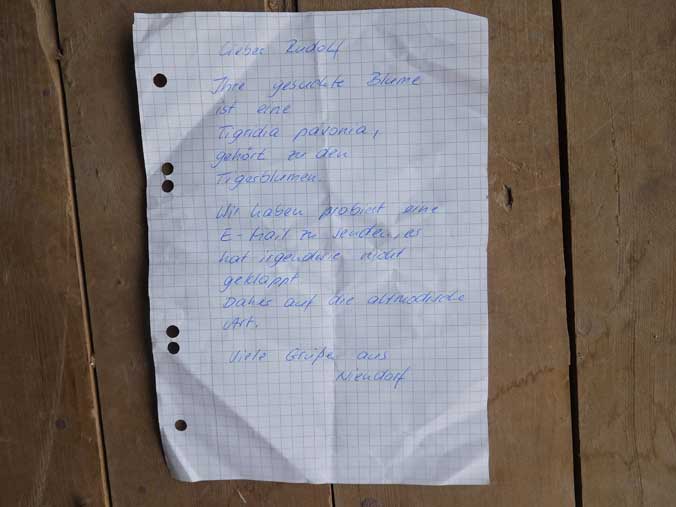 Lieber Rudolf
Ihre gesuchte Blume
ist eine
Tigridia pavonia,
gehört zu den
Tigerblumen.
Wir haben probiert eine
E-Mail zu senden, es
hat irgendwie nicht
geklappt
Daher auf die altmodische
Art.
Viele Grüße aus
Niendorf